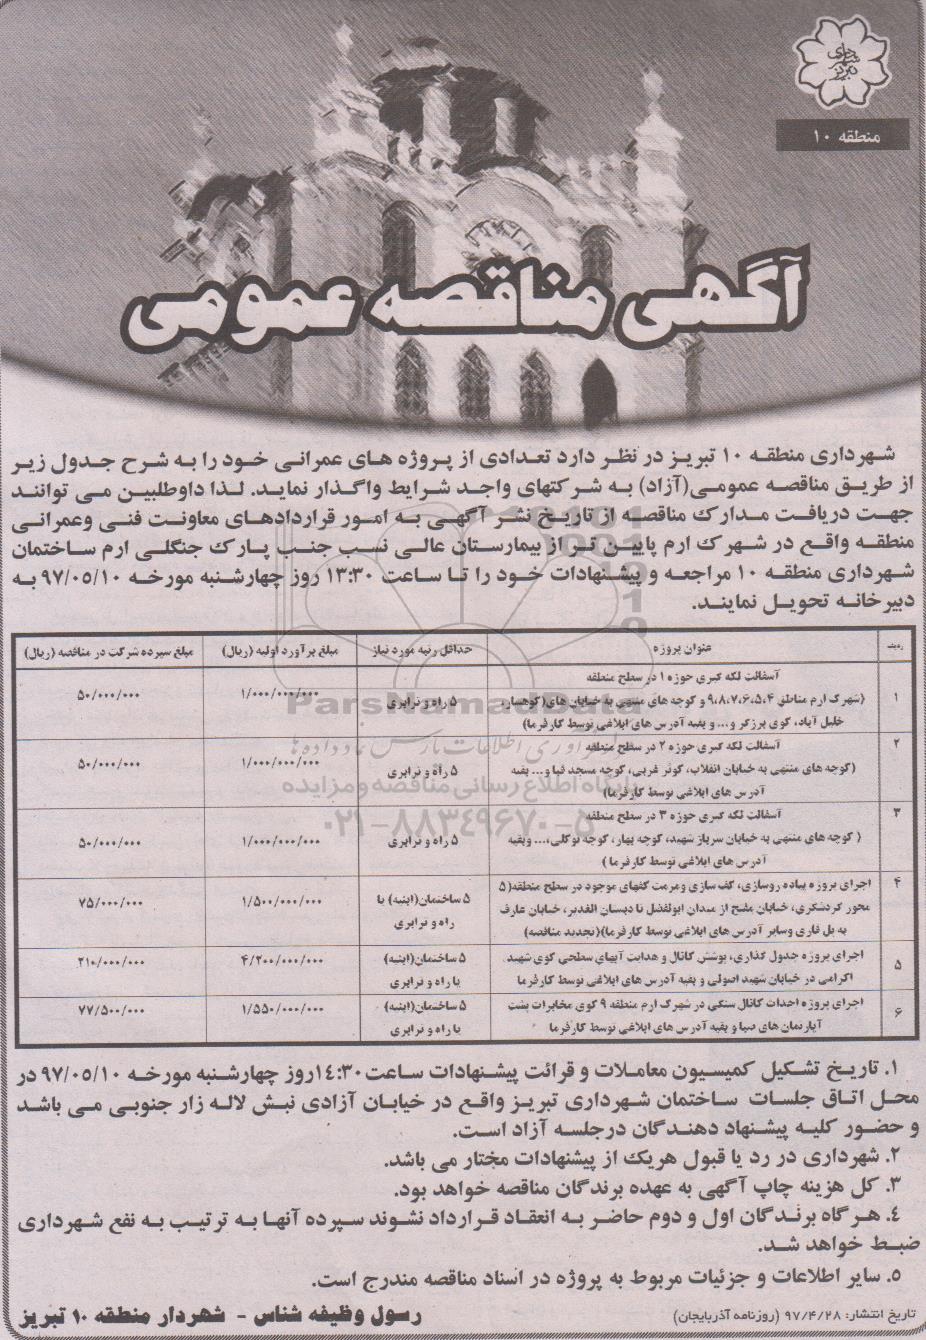 شهرداری
تبریز
منطقه ۱۰
آگهی مناقصه عمومی
شهرداری منطقه ۱۰ تبریز در نظر دارد تعدادی از پروژه های عمرانی خود را به شرح جدول زیر
از طریق مناقصه عمومی(آزاد) به شرکتهای واجد شرایط واگذار نماید. لذا داوطلبین می توانند
جهت دریافت مدارک مناقصه از تاریخ نشر آگهی به امور قراردادهای معاونت فنی وعمرانی
منطقه واقع در شهرک ارم پایین تر از بیمارستان عالی نسب جنب پارک جنگلی ارم ساختمان
شهرداری منطقه ۱۰ مراجعه و پیشنهادات خود را تا ساعت ۱۳:۳۰ روز چهارشنبه مورخه ۹۷/۰۵/۱۰ به
دبیرخانه تحویل نمایند.
ردیف عنوان پروژه حداقل رتبه مورد نیاز مبلغ برآورد اولیه (ریال) مبلغ سپرده شرکت در مناقصه (ریال)
آسفالت لکه گیری حوزه ۱ در سطح منطقه
۱ (شهرک ارم مناطق ۹،۸،۷،۶،۵،۴ و کوچه های منتهی به خیابان های(کوهسار، ۵ راه و ترابری ۱/۰۰۰/۰۰۰/۰۰۰ ۵۰/۰۰۰/۰۰۰
خلیل آباد، کوی برزگر و... و بقیه آدرس های ابلاغی توسط کارفرما)
۲ آسفالت لکه گیری حوزه ۲ در سطح منطقه
(کوچه های منتهی به خیابان انقلاب، کوثر غربی، کوچه مسجد قبا و... بقیه ۵ راه و ترابری ۱/۰۰۰/۰۰۰/۰۰۰ ۵۰/۰۰۰/۰۰۰
آدرس های ابلاغی توسط کارفرما)
۳ آسفالت لکه گیری حوزه ۳ در سطح منطقه
( کوچه های منتهی به خیابان سرباز شهید، کوچه بهار، کوچه توکلی،... وبقیه ۵ راه و ترابری ۱/۰۰۰/۰۰۰/۰۰۰ ۵۰/۰۰۰/۰۰۰
آدرس های ابلاغی توسط کارفرما )
۴ اجرای پروژه پیاده روسازی، کف سازی ومرمت کفهای موجود در سطح منطقه(۵ ۵ ساختمان(ابنیه) یا ۱/۵۰۰/۰۰۰/۰۰۰ ۷۵/۰۰۰/۰۰۰
محور گردشگری، خیابان مفتح از میدان ابولفضل تا دبستان الغدیر، خیابان عارف راه و ترابری
به پل قاری وسایر آدرس های ابلاغی توسط کارفرما)(تجدید مناقصه)
۵ اجرای پروژه جدول گذاری، پوشش کانال و هدایت آبهای سطحی کوی شهید ۵ ساختمان(ابنیه) ۴/۲۰۰/۰۰۰/۰۰۰ ۲۱۰/۰۰۰/۰۰۰
اکرامی در خیابان شهید اصولی و بقیه آدرس های ابلاغی توسط کارفرما یا راه و ترابری
۶ اجرای پروژه احداث کانال سنگی در شهرک ارم منطقه ۹ کوی مخابرات پشت ۵ ساختمان(ابنیه) ۱/۵۵۰/۰۰۰/۰۰۰ ۷۷/۵۰۰/۰۰۰
آپارتمان های صبا و بقیه آدرس های ابلاغی توسط کارفرما یا راه و ترابری
ParsNamadData
فرآوری اطلاعات پارس نماد داده ها
پایگاه اطلاع رسانی مناقصه ومزایده
۰۲۱-۸۸۳۴۹۶۷۰-۵
۱. تاریخ تشکیل کمیسیون معاملات و قرائت پیشنهادات ساعت۱۴:۳۰روز چهارشنبه مورخه ۹۷/۰۵/۱۰ در
محل اتاق جلسات ساختمان شهرداری تبریز واقع در خیابان آزادی نبش لاله زار جنوبی می باشد
و حضور کلیه پیشنهاد دهندگان درجلسه آزاد است.
۲. شهرداری در رد یا قبول هریک از پیشنهادات مختار می باشد.
۳. کل هزینه چاپ آگهی به عهده برندگان مناقصه خواهد بود.
۴. هرگاه برندگان اول و دوم حاضر به انعقاد قرارداد نشوند سپرده آنها به ترتیب به نفع شهرداری
ضبط خواهد شد.
۵. سایر اطلاعات و جزئیات مربوط به پروژه در اسناد مناقصه مندرج است.
تاریخ انتشار: ۹۷/۴/۲۸ (روزنامه آذربایجان) رسول وظیفه شناس - شهردار منطقه ۱۰ تبریز